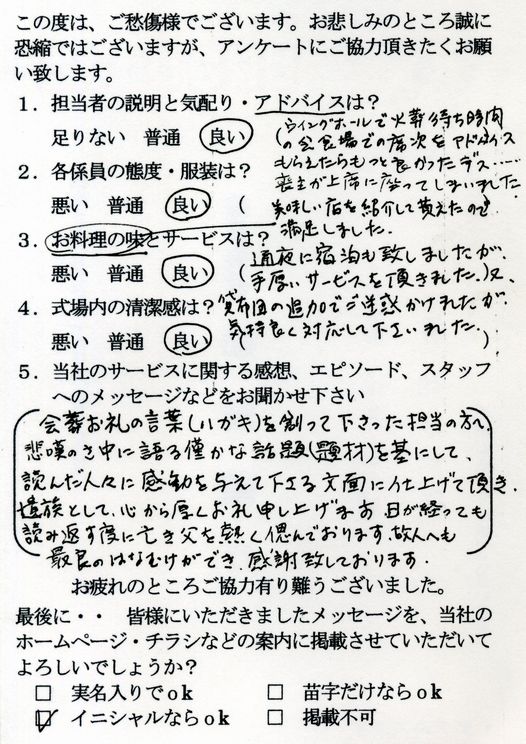 この度は、ご愁傷様でございます。お悲しみのところ誠に
恐縮ではございますが、アンケートにご協力頂きたくお願
い致します。
1．担当者の説明と気配り・アドバイスは？
足りない 普通 良い (ウイングホールで火葬待ち時間
の会食場での席次をアドバイス)
もらえたらもっと良かったデス……
2．各係員の態度・服装は？
喪主が上席に座ってしまいました
悪い 普通 良い (美味しい店を紹介して貰えたので
満足しました。
3．お料理の味とサービスは？
悪い 普通 良い (通夜に宿泊も致しましたが、
手厚いサービスを頂きました。)又、
4．式場内の清潔感は？
貸布団の追加でご迷惑かけましたが
悪い 普通 良い (気持良く対応して下さいました。)
5．当社のサービスに関する感想、エピソード、スタッフ
へのメッセージなどをお聞かせ下さい
会葬お礼の言葉(ハガキ)を創って下さった担当の方へ、
悲嘆のさ中に語る僅かな話題(題材)を基にして、
読んだ人々に感動を与えて下さる文面に仕上げて頂き、
遺族として、心から厚くお礼申し上げます 日が経っても
読み返す度に亡き父を熱く偲んでおります、故人へも
最良のはなむけができ、感謝致しております。
お疲れのところご協力有り難うございました。
最後に・・ 皆様にいただきましたメッセージを、当社の
ホームページ・チラシなどの案内に掲載させていただいて
よろしいでしょうか？
□ 実名入りでｏｋ □ 苗字だけならｏｋ
☑ イニシャルならｏｋ □ 掲載不可